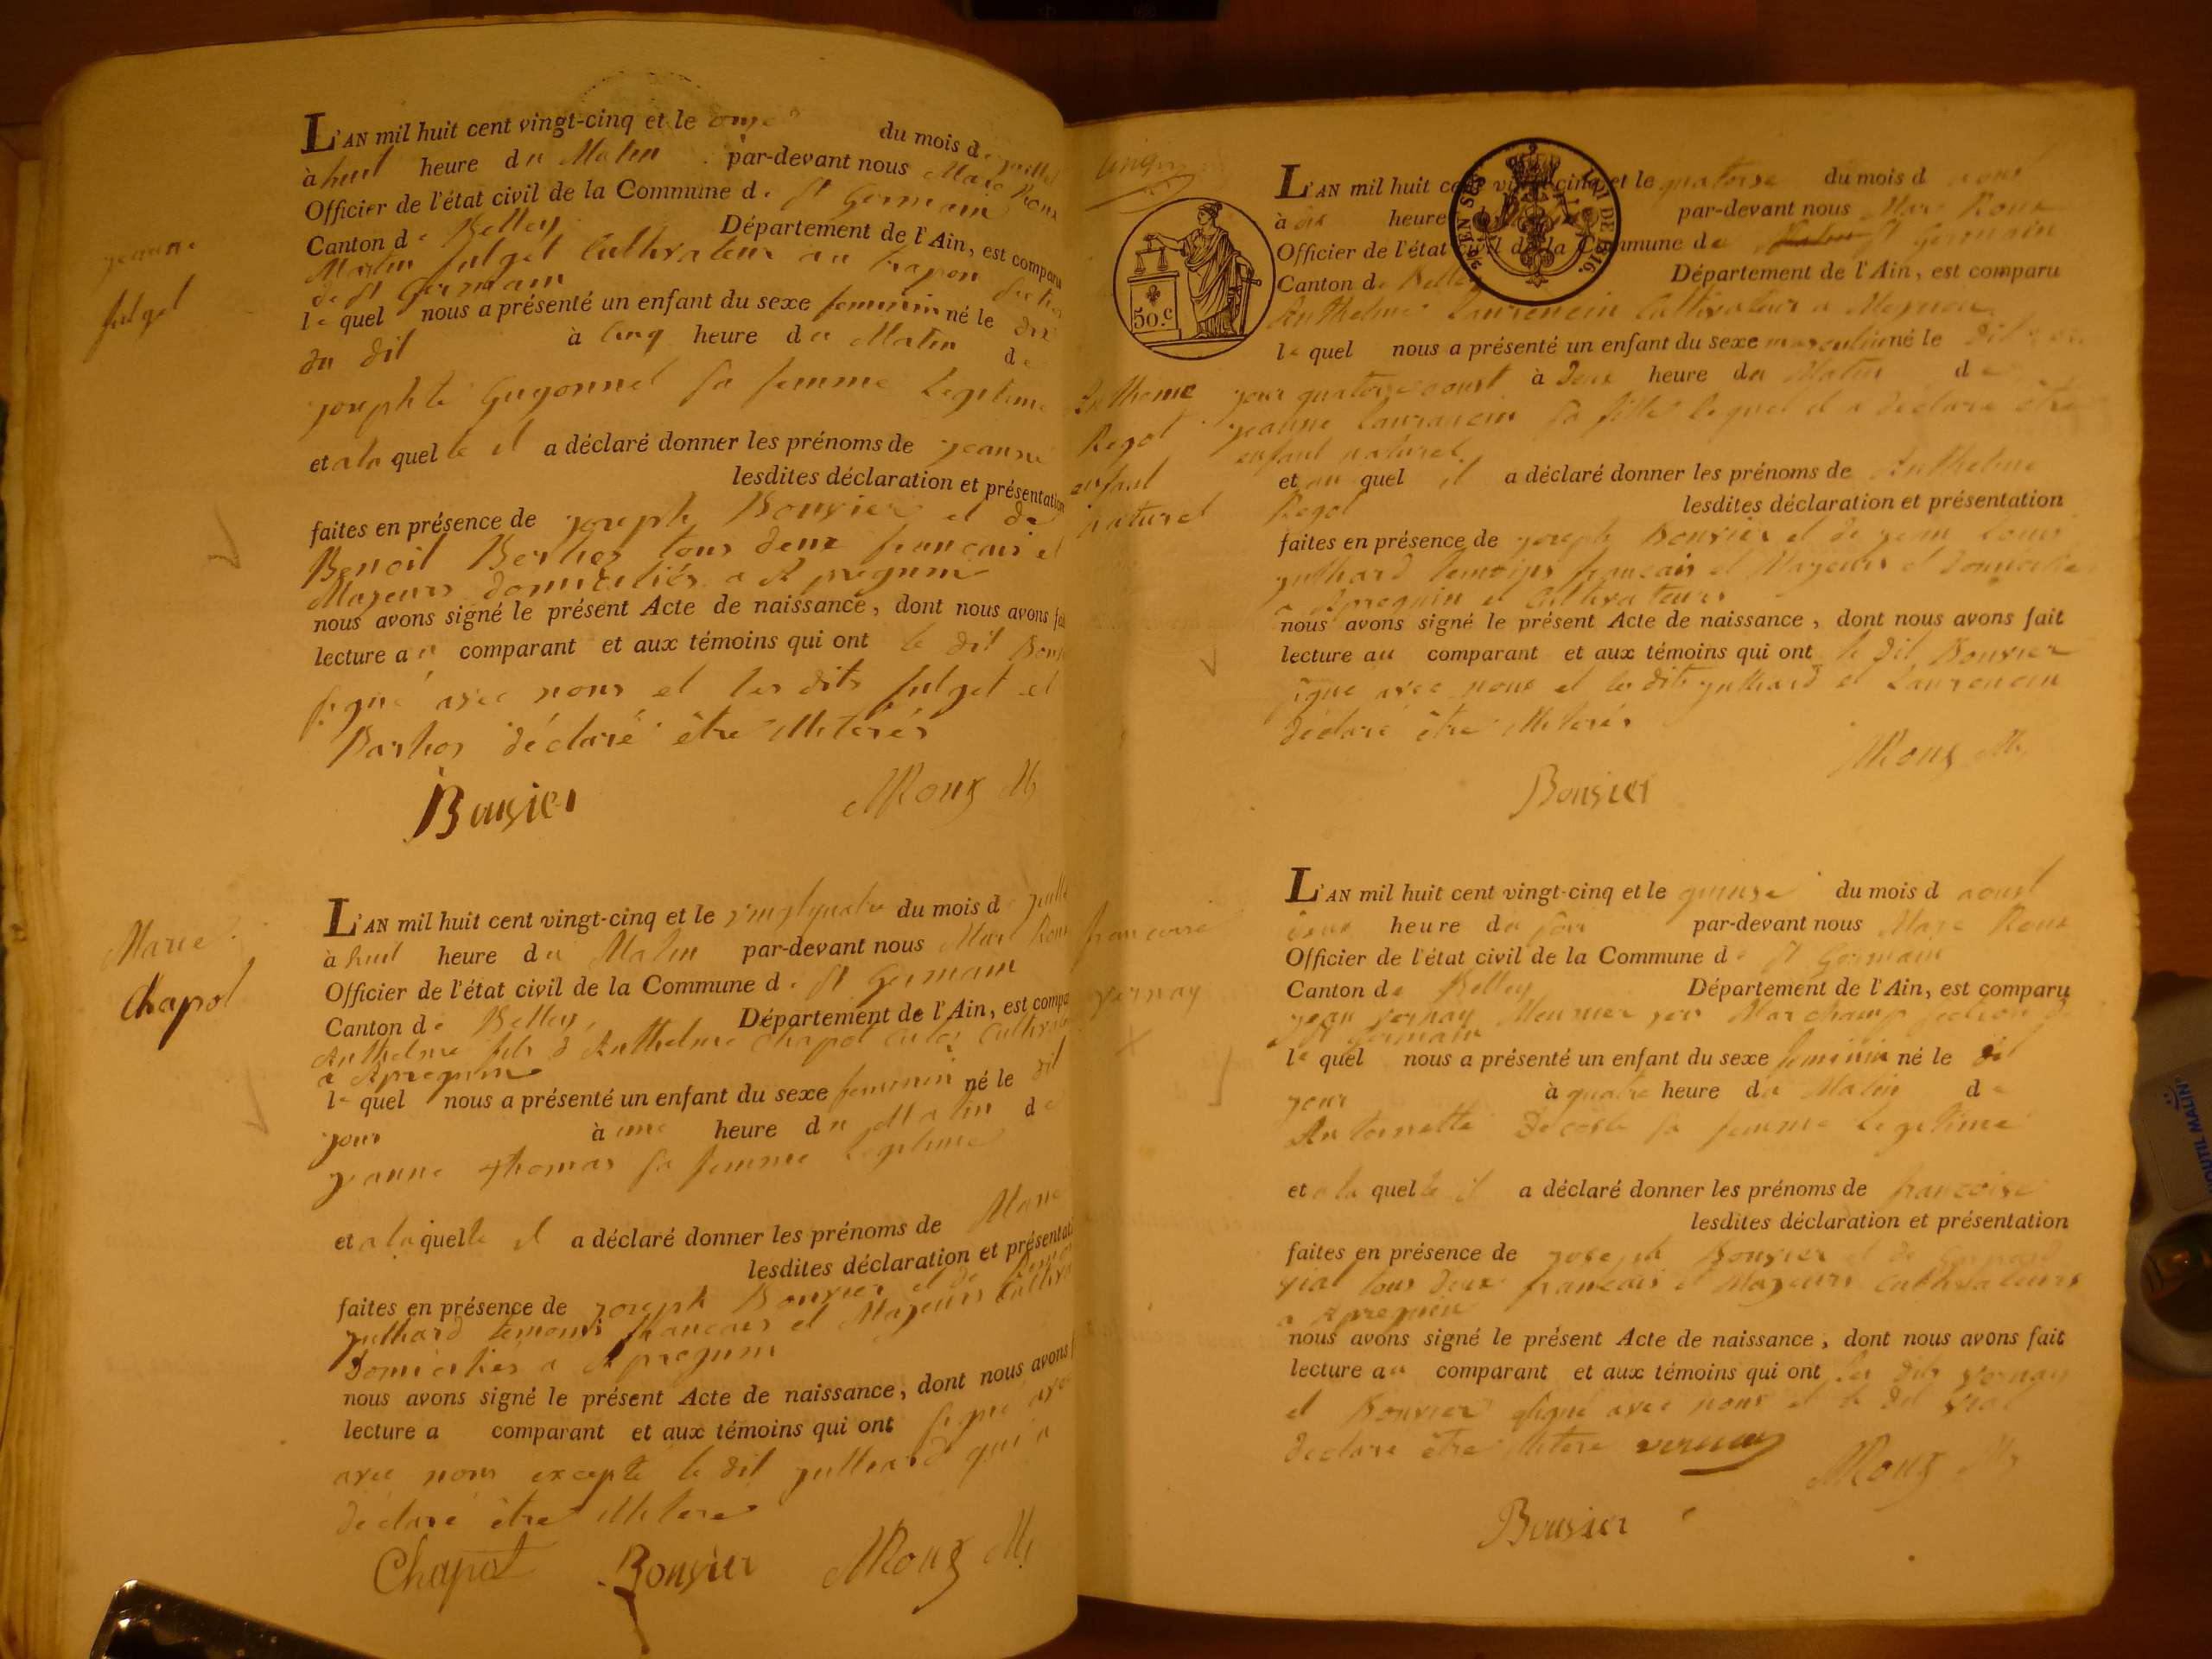 jeanne
fulget
L'AN mil huit cent vingt-cinq et le onze du mois de juillet
à huit heure du Matin par-devant nous Marc Roux
Officier de l'état civil de la Commune de St Germain
Canton de Belley Département de l'Ain, est comparu
Martin fulget Cultivateur au
de St Germain
le quel nous a présenté un enfant du sexe feminin né le dix
du dit à cinq heure du Matin de
josephte Guyonnet sa femme Legitime
et a la quelle il a déclaré donner les prénoms de jeanne
lesdites déclaration et présentation
faites en présence de joseph Bouvier et de
Benoit Berthos tous deux francais et
Majeurs domiciliés a
nous avons signé le présent Acte de naissance, dont nous avons fai
lecture au comparant et aux témoins qui ont le dit Bouv
signé avec nous et les dits fulget et
Barhos déclaré être illiterés
Bouvier MRoux M
Marie
Chapot
L'AN mil huit cent vingt-cinq et le vingtquatre du mois de juill
à huit heure du Matin par-devant nous Marc Roux
Officier de l'état civil de la Commune de St Germain
Canton de Belley Département de l'Ain, est compa
Anthelme fils d'Anthelme Chapot Cultiva
a
le quel nous a présenté un enfant du sexe feminin né le dit
jour à une heure du Matin de
jeanne thomas sa femme Legitime
et a la quelle il a déclaré donner les prénoms de Marie
lesdites déclaration et présentati
faites en présence de joseph Bouvier et de
julliard temoins francais et Majeurs Cultiva
domiciliés a
nous avons signé le présent Acte de naissance, dont nous avons
lecture a comparant et aux témoins qui ont signé ave
avec nous excepté le dit julliard qui a
déclaré être illiteré
Chapot Bouvier MRoux M
50.c
EN SUS LOI DE 1816.
Anthelme
Regot
enfant
naturel
L'AN mil huit cent vingt-cinq et le quatorze du mois d aoust
à dix heure par-devant nous Marc Roux
Officier de l'état civil de la Commune de St Germain
Canton de Belley Département de l'Ain, est comparu
Anthelme Laurencin Cultivateur a
le quel nous a présenté un enfant du sexe masculin né le dit
jour quatorze aoust à deux heure du Matin de
jeanne Laurancin sa fille lequel il a déclaré être
enfant naturel
et au quel il a déclaré donner les prénoms de Anthelme
Regot lesdites déclaration et présentation
faites en présence de joseph Bouvier et de jean Louis
julliard temoins francais et Majeurs et domiciliés
a et Cultivateurs
nous avons signé le présent Acte de naissance, dont nous avons fait
lecture au comparant et aux témoins qui ont le dit Bouvier
signé avec nous et les dits julliard et Laurencin
déclaré être illiterés
Bouvier MRoux M
francoise
vernay
L'AN mil huit cent vingt-cinq et le quinze du mois d aoust
heure du soir par-devant nous Marc Roux
Officier de l'état civil de la Commune de St Germain
Canton de Belley Département de l'Ain, est comparu
jean vernay Meunier Marchamp section de
St Germain
le quel nous a présenté un enfant du sexe feminin né le dit
jour à quatre heure du Matin de
Antoinette Decoste sa femme Legitime
et a la quelle il a déclaré donner les prénoms de francoise
lesdites déclaration et présentation
faites en présence de joseph Bouvier et de
vial tous deux francais et Majeurs Cultivateurs
a
nous avons signé le présent Acte de naissance, dont nous avons fait
lecture au comparant et aux témoins qui ont les dits vernay
et Bouvier signé avec nous et le dit vial
déclaré être illiteré vernay
MRoux M
Bouvier
OUTIL MALIN